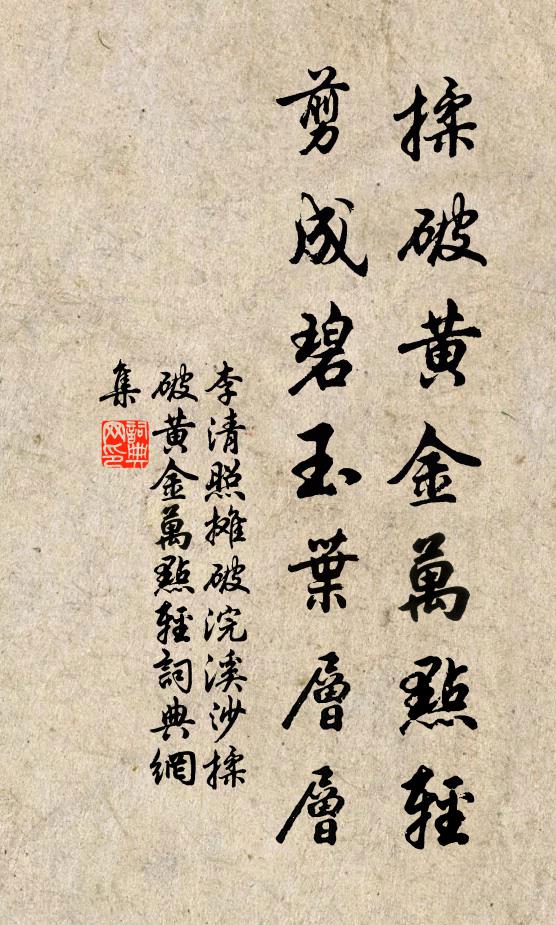 揉破黃金萬點輕
剪成碧玉葉層層
李清照攤破浣溪沙揉
破黃金萬點輕詞典網
集
詞典
网印